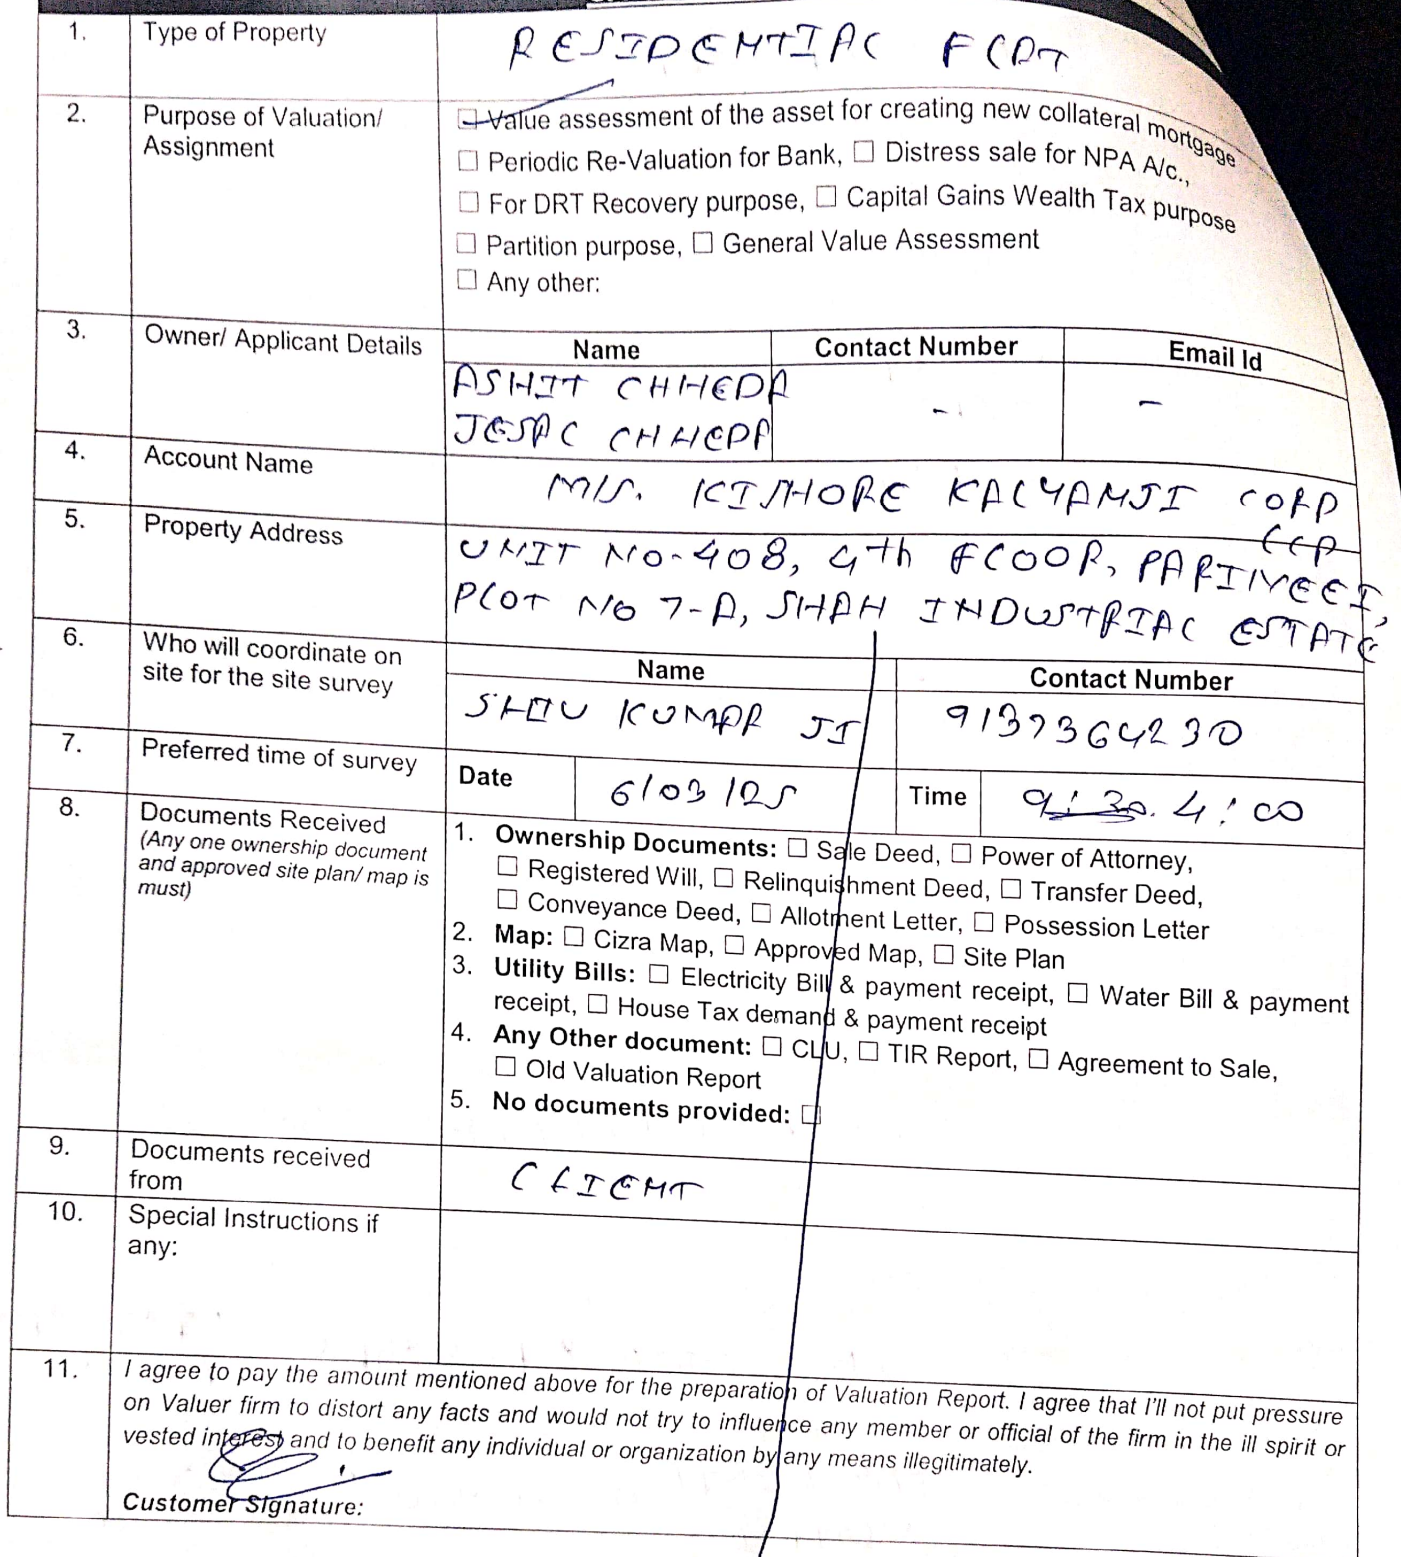 1. Type of Property RESIDENTIAL FLAT
2. Purpose of Valuation/ Assignment
☑ Value assessment of the asset for creating new collateral mortgage
☐ Periodic Re-Valuation for Bank, ☐ Distress sale for NPA A/c.,
☐ For DRT Recovery purpose, ☐ Capital Gains Wealth Tax purpose
☐ Partition purpose, ☐ General Value Assessment
☐ Any other:
3. Owner/ Applicant Details Name Contact Number Email Id
ASHIT CHHEDA - -
JESAL CHHEDA
4. Account Name M/S. KISHORE KALYANJI CORP
LLP
5. Property Address UNIT NO-408, 4th FLOOR,
PLOT NO 7-A, SHAH INDUSTRIAL ESTATE
6. Who will coordinate on Name Contact Number
site for the site survey KUMAR JI 9137364230
7. Preferred time of survey Date 6/03/25 Time 9:30. 4:00
8. Documents Received
(Any one ownership document
and approved site plan/ map is
must)
1. Ownership Documents: ☐ Sale Deed, ☐ Power of Attorney,
☐ Registered Will, ☐ Relinquishment Deed, ☐ Transfer Deed,
☐ Conveyance Deed, ☐ Allotment Letter, ☐ Possession Letter
2. Map: ☐ Cizra Map, ☐ Approved Map, ☐ Site Plan
3. Utility Bills: ☐ Electricity Bill & payment receipt, ☐ Water Bill & payment
receipt, ☐ House Tax demand & payment receipt
4. Any Other document: ☐ CLU, ☐ TIR Report, ☐ Agreement to Sale,
☐ Old Valuation Report
5. No documents provided: ☐
9. Documents received
from CLIENT
10. Special Instructions if
any:
11. I agree to pay the amount mentioned above for the preparation of Valuation Report. I agree that I'll not put pressure
on Valuer firm to distort any facts and would not try to influence any member or official of the firm in the ill spirit or
vested interest and to benefit any individual or organization by any means illegitimately.
Customer Signature: